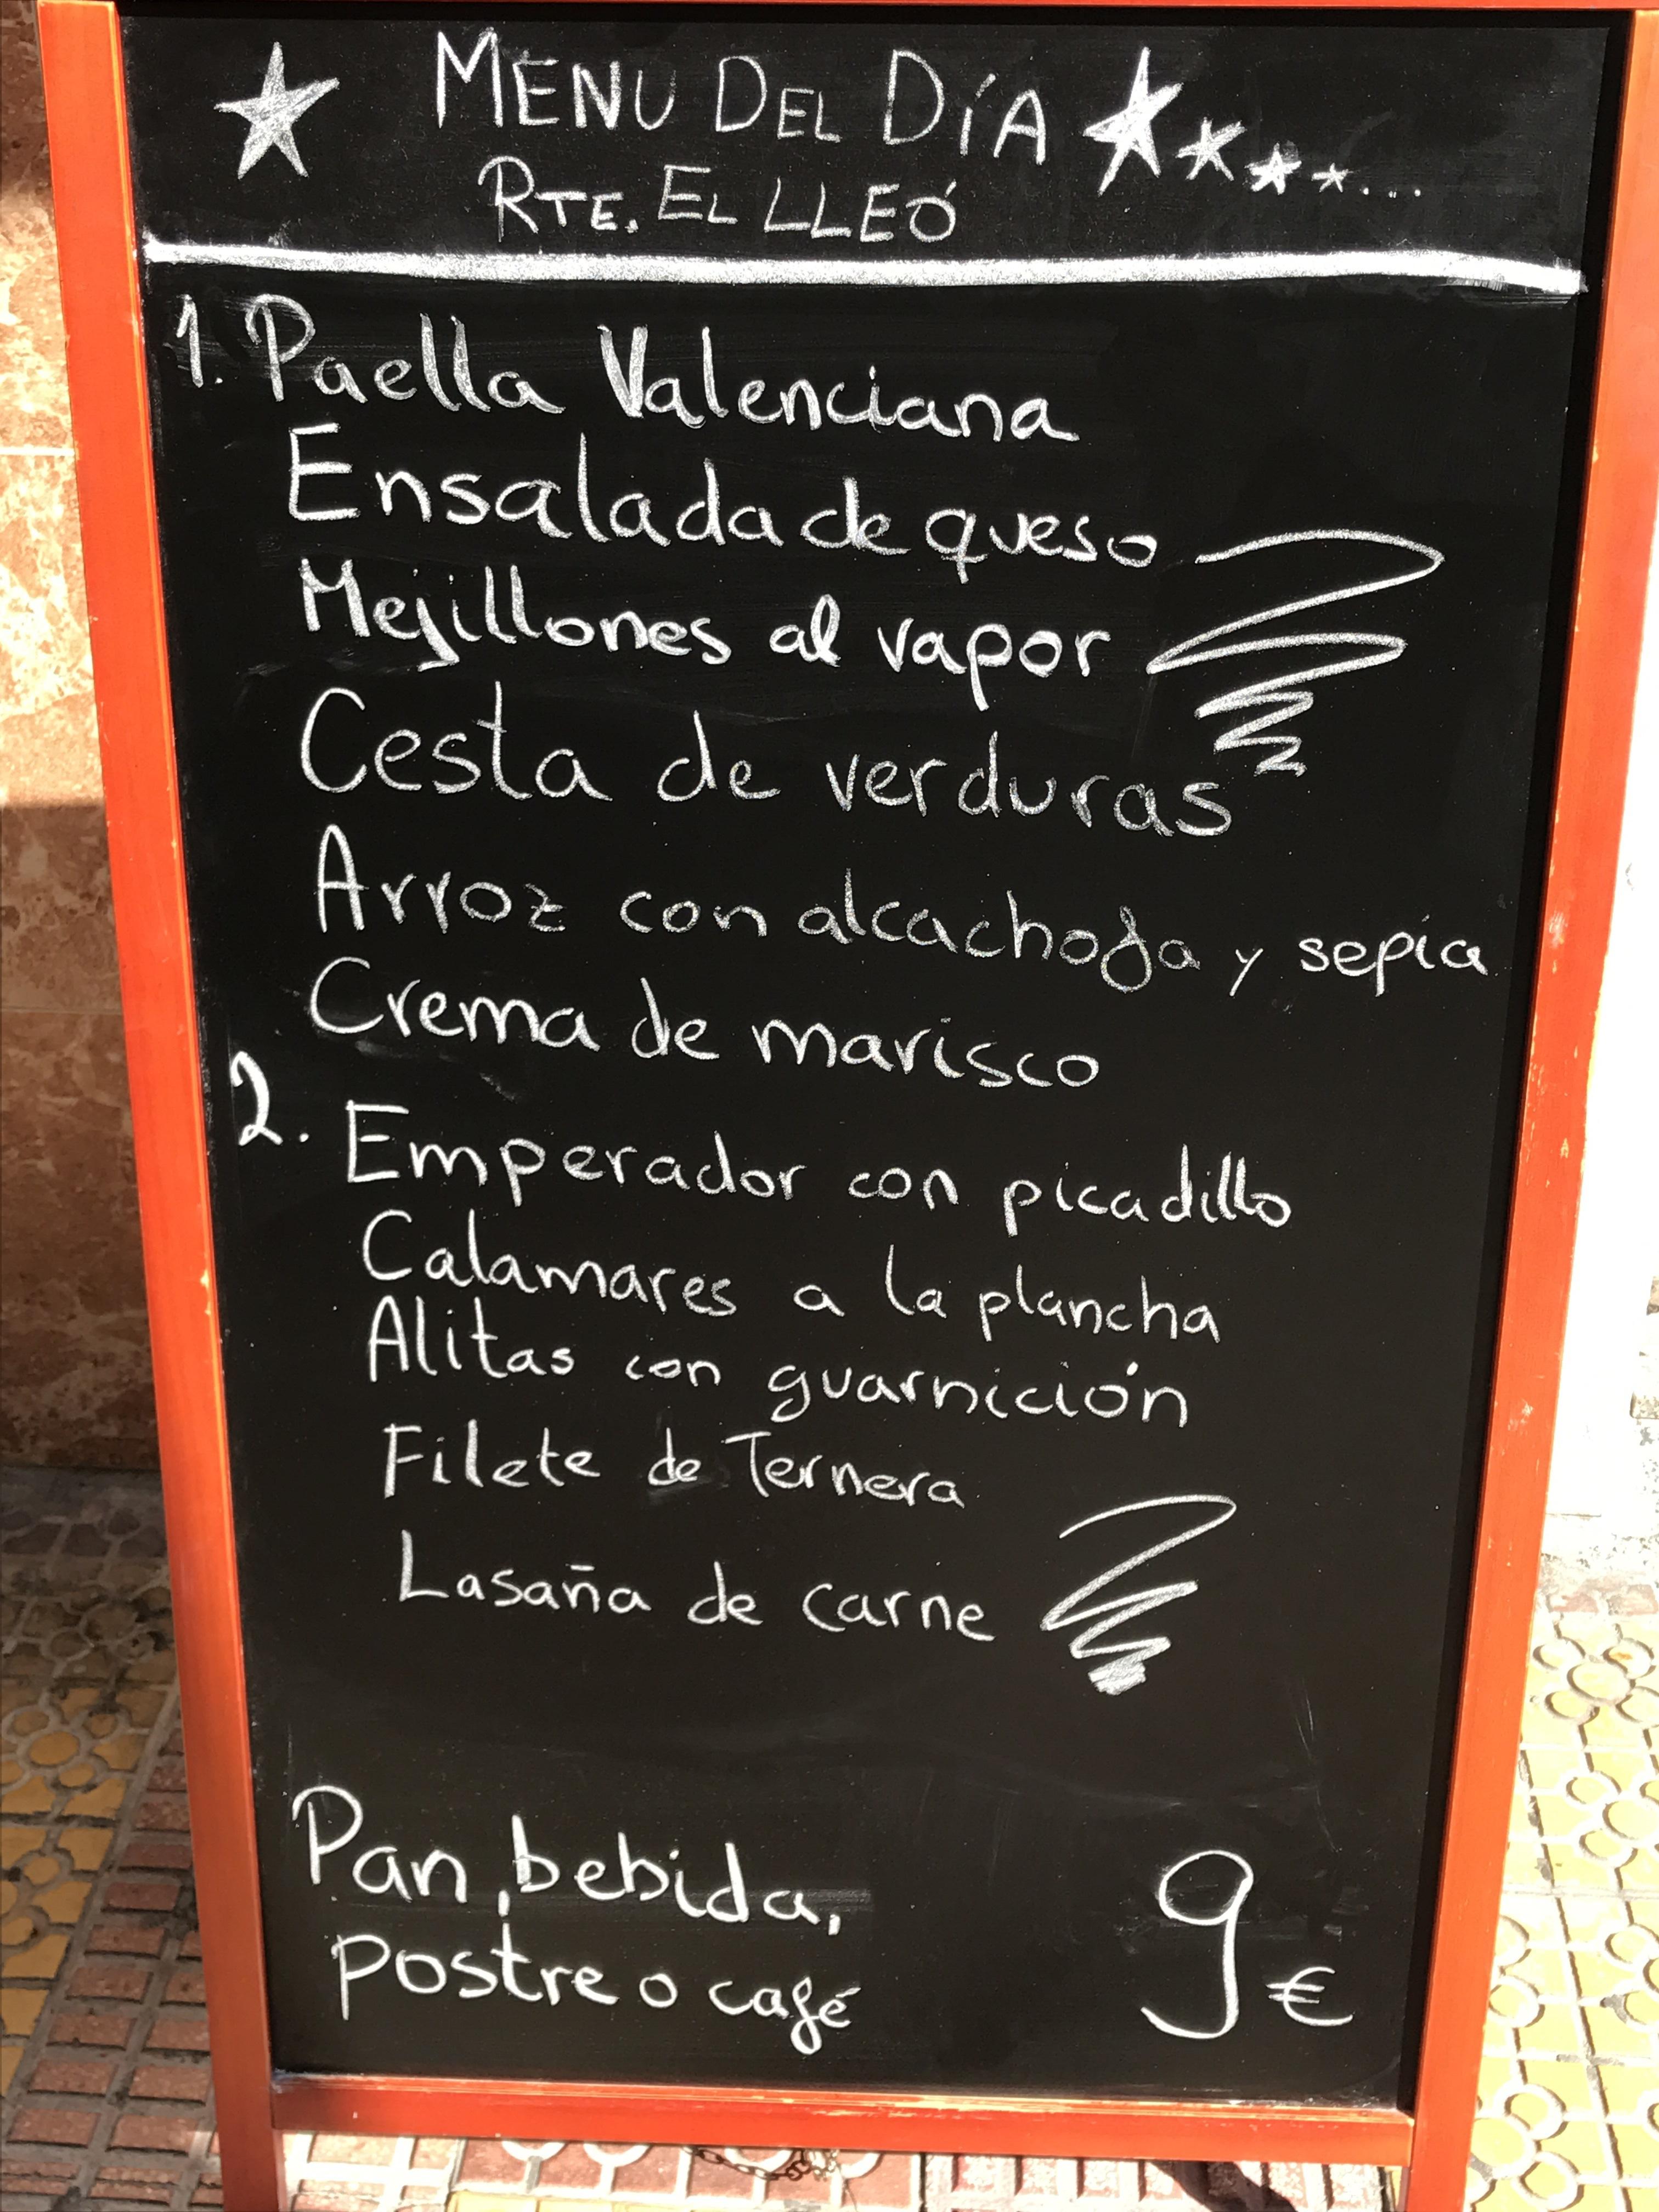 MENU DEL DÍA
RTE. EL LLEÓ
1. Paella Valenciana
Ensalada de queso
Mejillones al vapor
Cesta de verduras
Arroz con alcachofa y sepia
Crema de marisco
2. Emperador con picadillo
Calamares a la plancha
Alitas con guarnición
Filete de Ternera
Lasaña de carne
Pan, bebida,
postre o café 9€